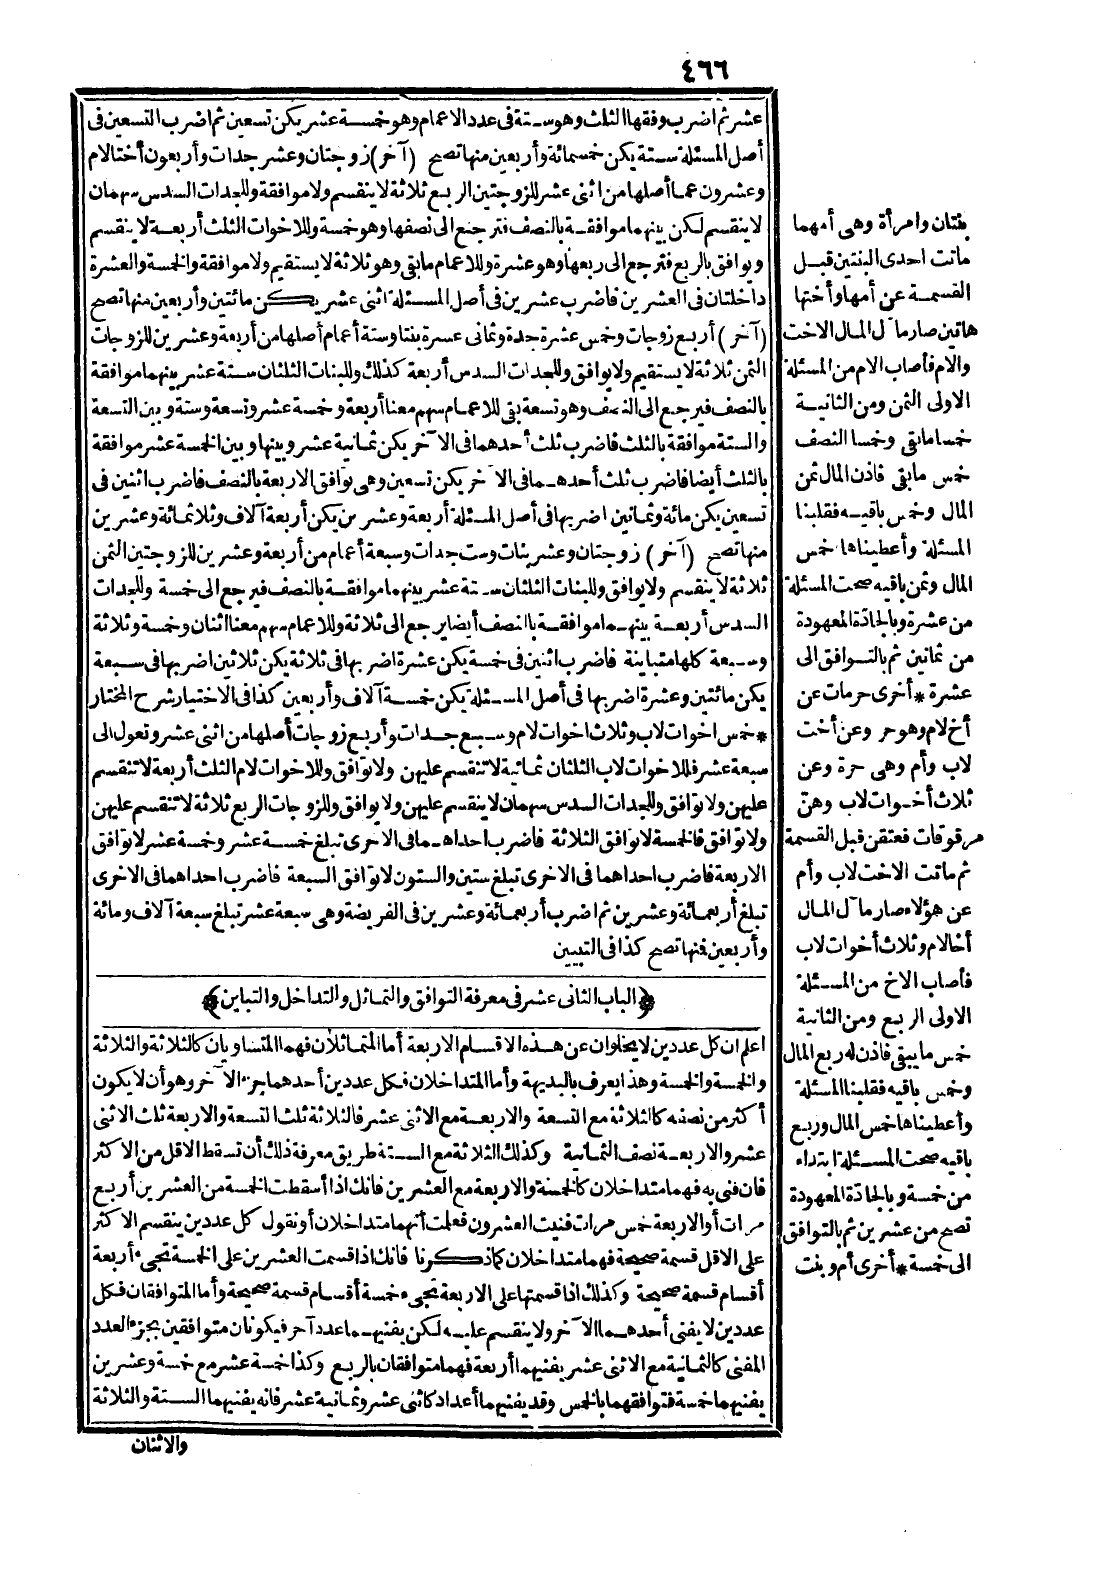 ٤٦٦
عشر ثم اضرب وفقها الثلث وهو ستة فى عدد الاعمام وهو خمسة عشر يكن تسعين ثم اضرب التسعين فى
أصل المسئلة ستة يكن خمسمائة وأربعين منها تصح (آخر) زوجتان وعشر جدات وأربعون أختا لام
وعشرون عما أصلها من اثنى عشر للزوجتين الربع ثلاثة لا ينقسم ولا موافقة وللجدات السدس سهمان
لا ينقسم لكن بينهما موافقة بالنصف فترجع الى نصفها وهو خمسة وللاخوات الثلث أربعة لا ينقسم
ويوافق بالربع فترجع الى ربعها وهو عشرة وللاعمام ما بقى وهو ثلاثة لا يستقيم ولا موافقة والخمسة والعشرة
داخلتان فى العشرين فاضرب عشرين فى أصل المسئلة اثنى عشر يكن مائتين وأربعين منها تصح
(آخر) أربع زوجات وخمس عشرة جدة وثمانى عشرة بنتا وستة أعمام أصلها من أربعة وعشرين للزوجات
الثمن ثلاثة لا يستقيم ولا يوافق وللجدات السدس أربعة كذلك وللبنات الثلثان ستة عشر بينهما موافقة
بالنصف فيرجع الى النصف وهو تسعة بقى للاعمام سهم معنا أربعة وخمسة عشر وتسعة وستة وبين التسعة
والستة موافقة بالثلث فاضرب ثلث أحدهما فى الآخر يكن ثمانية عشر وبينها وبين الخمسة عشر موافقة
بالثلث أيضا فاضرب ثلث أحدهما فى الآخر يكن تسعين وهى توافق الاربعة بالنصف فاضرب اثنين فى
تسعين يكن مائة وثمانين اضربها فى أصل المسئلة أربعة وعشرين يكن أربعة آلاف وثلاثمائة وعشرين
منها تصح (آخر) زوجتان وعشر بنات وست جدات وسبعة أعمام من أربعة وعشرين للزوجتين الثمن
ثلاثة لا ينقسم ولا يوافق وللبنات الثلثان ستة عشر بينهما موافقة بالنصف فيرجع الى خمسة وللجدات
السدس أربعة بينهما موافقة بالنصف أيضا يرجع الى ثلاثة وللاعمام سهم معنا اثنان وخمسة وثلاثة
وسبعة كلها متباينة فاضرب اثنين فى خمسة يكن عشرة اضربها فى ثلاثة يكن ثلاثين اضربها فى سبعة
يكن مائتين وعشرة اضربها فى أصل المسئلة يكن خمسة آلاف وأربعين كذا فى الاختيار شرح المختار
* خمس اخوات لاب وثلاث اخوات لام وسبع جدات وأربع زوجات أصلها من اثنى عشر وتعول الى
سبعة عشر فللاخوات لاب الثلثان ثمانية لا تنقسم عليهن ولا توافق وللاخوات لام الثلث أربعة لا تنقسم
عليهن ولا توافق وللجدات السدس سهمان لا ينقسم عليهن ولا يوافق وللزوجات الربع ثلاثة لا تنقسم عليهن
ولا توافق فالخمسة لا توافق الثلاثة فاضرب احداهما فى الاخرى تبلغ خمسة عشر وخمسة عشر لا توافق
الاربعة فاضرب احداهما فى الاخرى تبلغ ستين والستون لا توافق السبعة فاضرب احداهما فى الاخرى
تبلغ أربعمائة وعشرين ثم اضرب أربعمائة وعشرين فى الفريضة وهى سبعة عشر تبلغ سبعة آلاف ومائة
وأربعين فنها تصح كذا فى التبيين
﴿الباب الثانى عشر فى معرفة التوافق والتماثل والتداخل والتباين﴾
اعلم ان كل عددين لا يخلوان عن هذه الاقسام الاربعة أما المتماثلان فهما المتساويان كالثلاثة والثلاثة
والخمسة والخمسة وهذا يعرف بالبديهة وأما المتداخلان فكل عددين أحدهما جزء الآخر وهو أن لا يكون
أكثر من نصفه كالثلاثة مع التسعة والاربعة مع الاثنى عشر فالثلاثة ثلث التسعة والاربعة ثلث الاثنى
عشر والاربعة نصف الثمانية وكذلك الثلاثة مع الستة طريق معرفة ذلك أن تسقط الاقل من الاكثر
فان فنى به فهما متداخلان كالخمسة والاربعة مع العشرين فانك اذا أسقطت الخمسة من العشرين أربع
مرات أو الاربعة خمس مرات فنيت العشرون فعلمت أنهما متداخلان أو نقول كل عددين ينقسم الاكثر
على الاقل قسمة صحيحة فهما متداخلان كما ذكرنا فانك اذا قسمت العشرين على الخمسة تجىء أربعة
أقسام قسمة صحيحة وكذلك اذا قسمتها على الاربعة تجىء خمسة أقسام قسمة صحيحة وأما المتوافقان فكل
عددين لا يفنى أحدهما الآخر ولا ينقسم عليه لكن يفنيهما عدد آخر فيكونان متوافقين بجزء العدد
المفنى كالثمانية مع الاثنى عشر يفنيهما أربعة فهما متوافقان بالربع وكذا خمسة عشر مع خمسة وعشرين
يفنيهما خمسة فتوافقهما بالخمس وقد يفنيهما أعداد كاثنى عشر وثمانية عشر فانه يفنيهما الستة والثلاثة
والاثنان
بنتان وامرأة وهى أمهما
ماتت احدى البنتين قبل
القسمة عن أمها وأختها
هاتين صار مآل المال الاخت
والام فأصاب الام من المسئلة
الاولى الثمن ومن الثانية
خمسا ما بقى وخمسا النصف
خمس ما بقى فاذن المال ثمن
المال وخمس باقيه فقلبنا
المسئلة وأعطيناها خمس
المال وثمن باقيه صحت المسئلة
من عشرة وبالجادة المعهودة
من ثمانين ثم بالتوافق الى
عشرة * أخرى حرمات عن
أخ لام وهو حر وعن أخت
لاب وأم وهى حرة وعن
ثلاث أخوات لاب وهن
مرقوقات فعتقن قبل القسمة
ثم ماتت الاخت لاب وأم
عن هؤلاء صار مآل المال
أخا لام وثلاث أخوات لاب
فأصاب الاخ من المسئلة
الاولى الربع ومن الثانية
خمس ما يبقى فاذن له ربع المال
وخمس باقيه فقلبنا المسئلة
وأعطيناها خمس المال وربع
باقيه صحت المسئلة ابتداء
من خمسة وبالجادة المعهودة
تصح من عشرين ثم بالتوافق
الى خمسة * أخرى أم وبنت